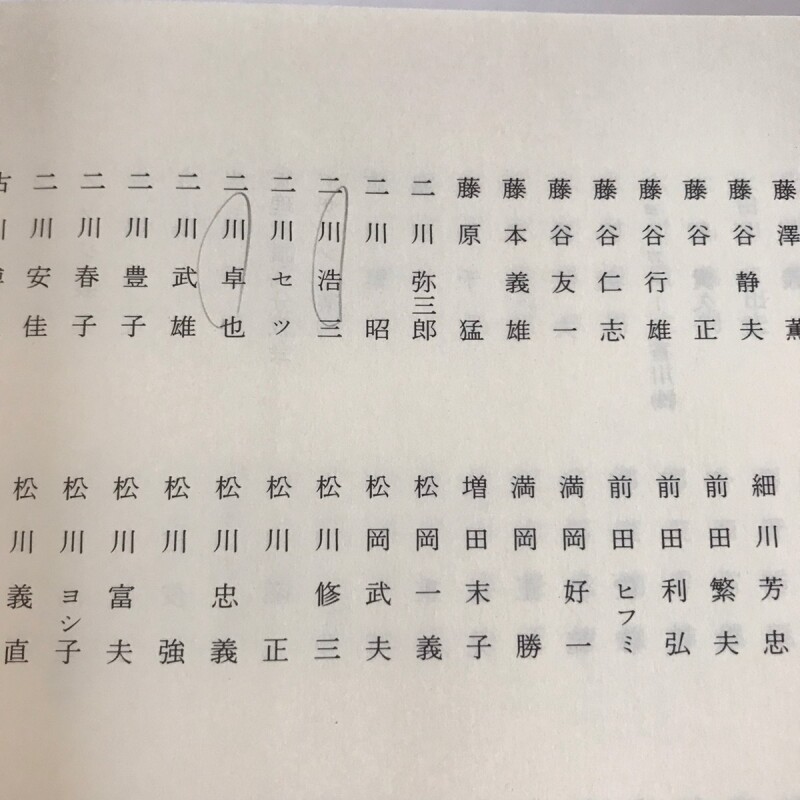 藤澤薫
藤谷静夫
藤谷正
藤谷行雄
藤谷仁志
藤谷友一
藤本義雄
藤原猛
二川弥三郎
二川昭
二川浩三
二川セツ
二川卓也
二川武雄
二川豊子
二川春子
二川安佳
細川芳忠
前田繁夫
前田利弘
前田ヒフミ
満岡好一
満岡勝
増田末子
松岡一義
松岡武夫
松川修三
松川正
松川忠義
松川強
松川富夫
松川ヨシ子
松川義直